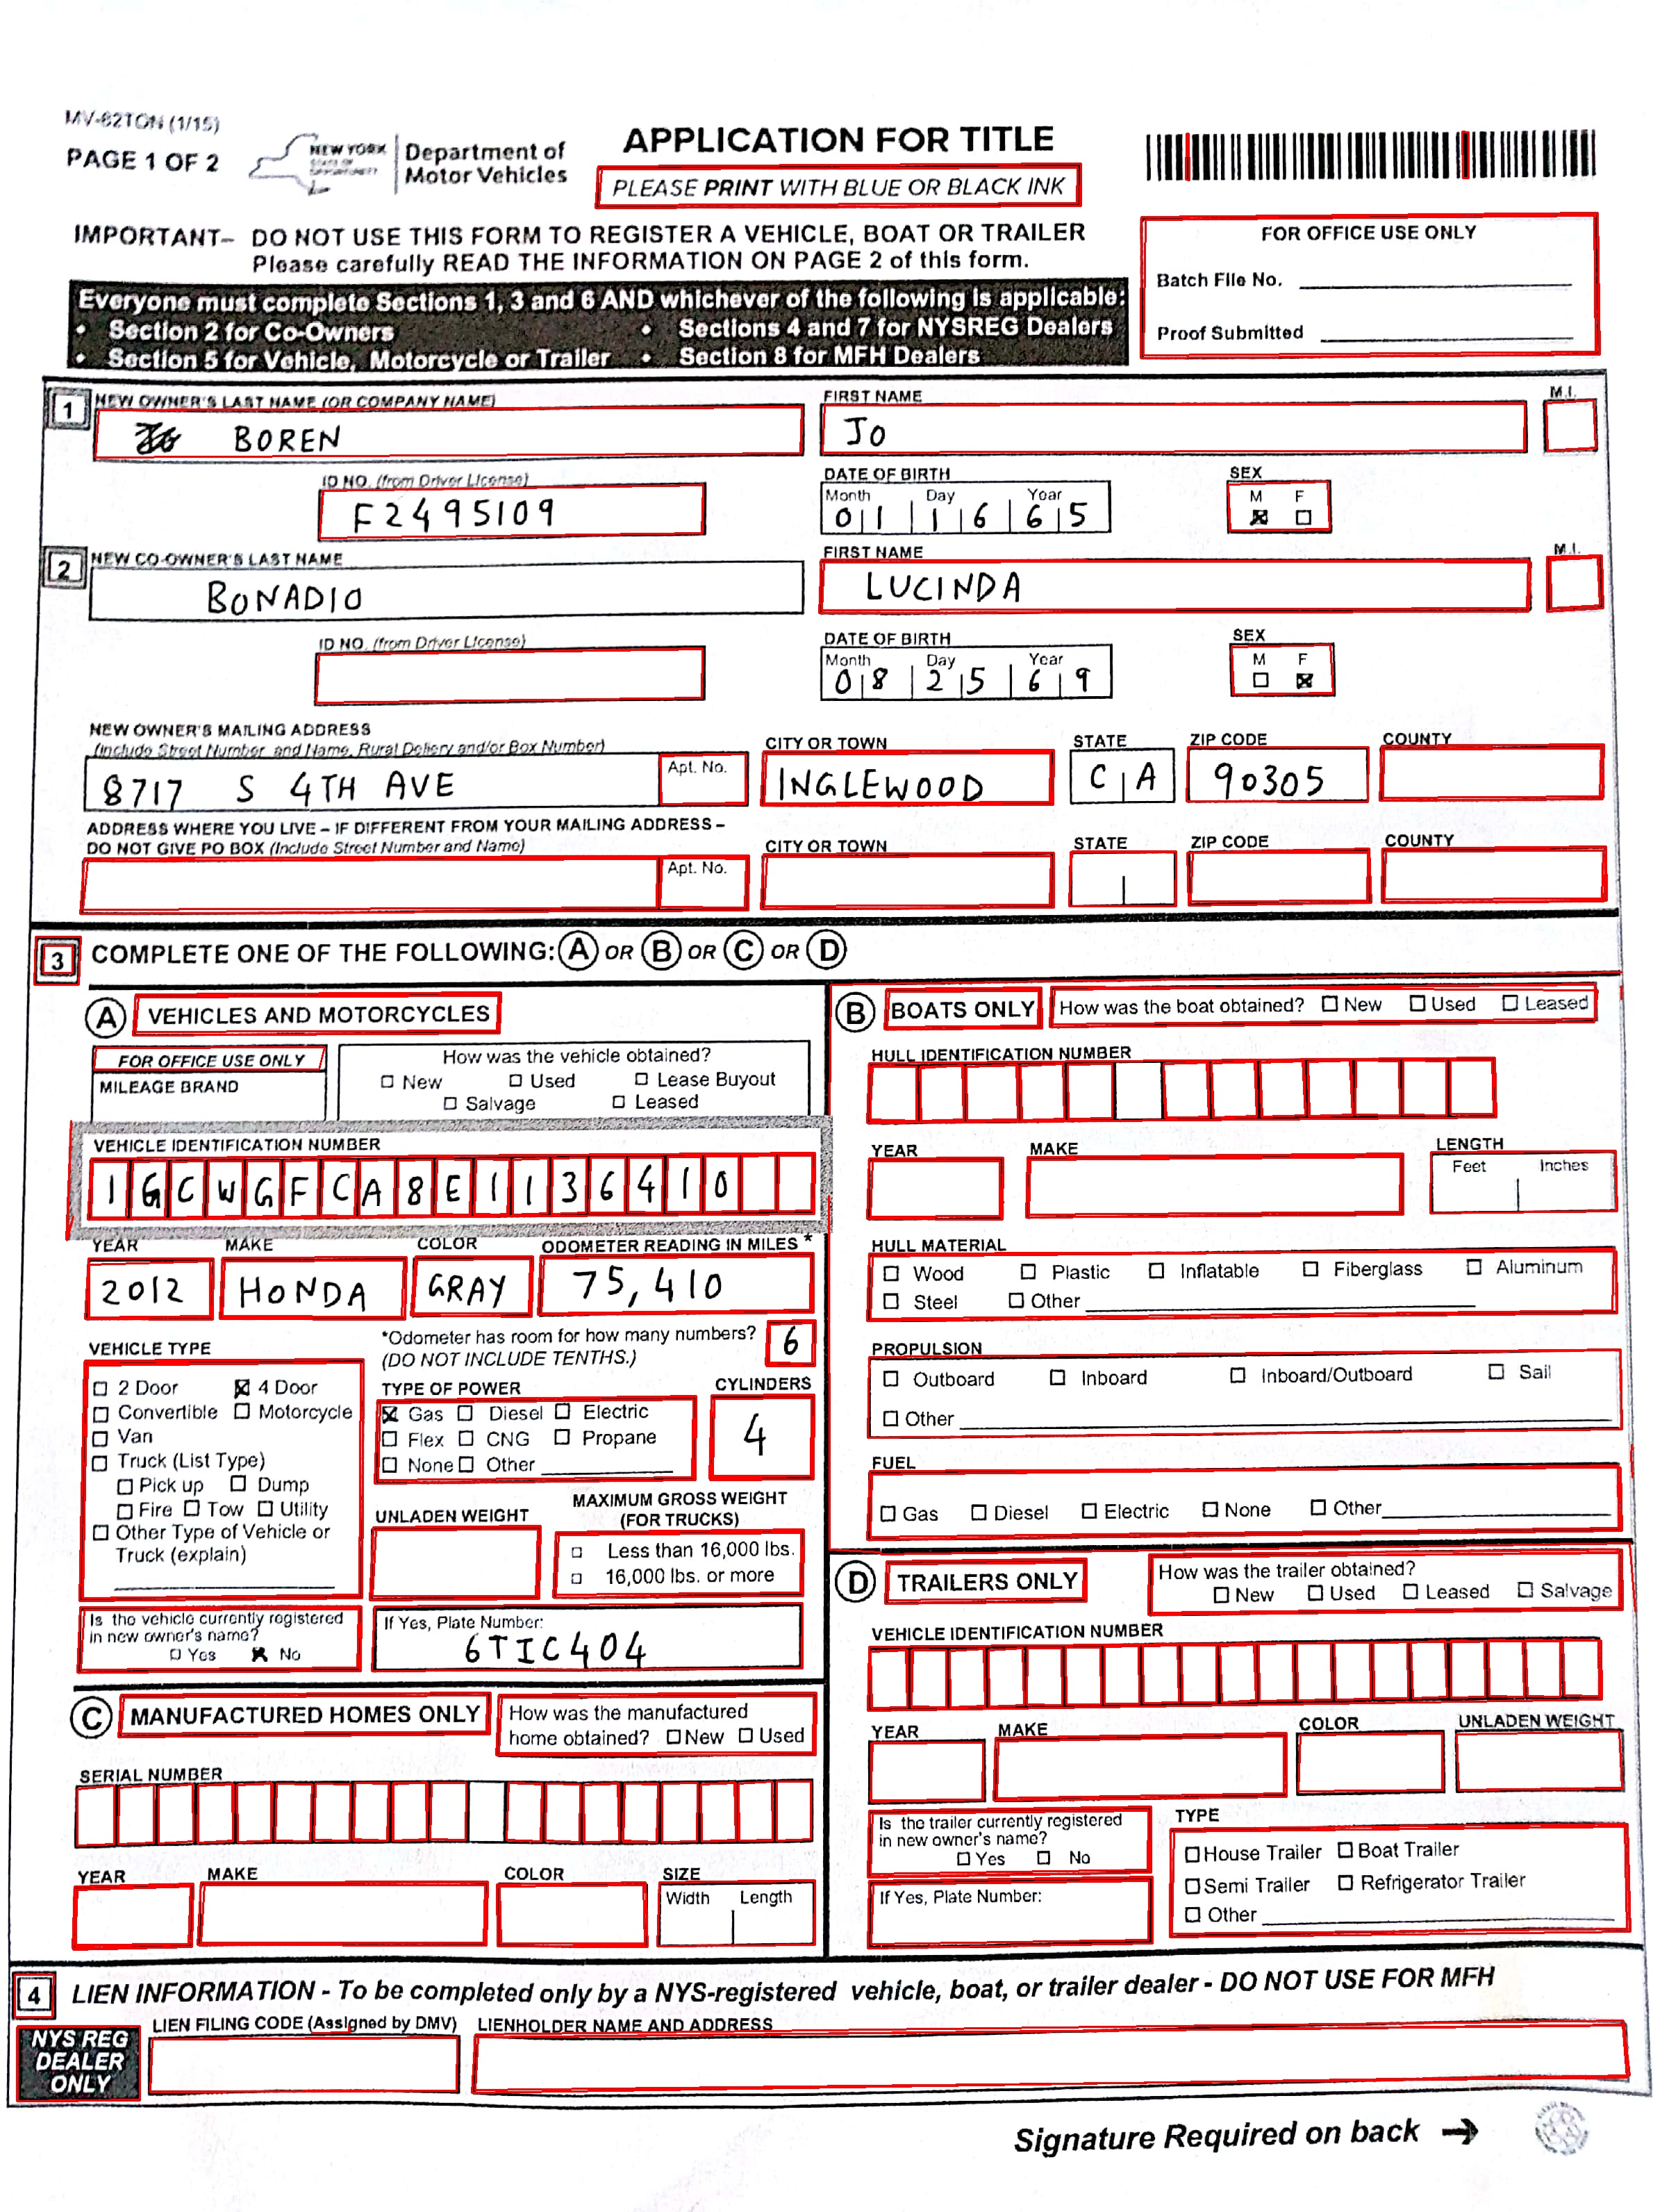 MV-82TON (1/15)
PAGE 1 OF 2
NEW YORK
STATE OF
OPPORTUNITY
Department of
Motor Vehicles
APPLICATION FOR TITLE
PLEASE PRINT WITH BLUE OR BLACK INK
IMPORTANT– DO NOT USE THIS FORM TO REGISTER A VEHICLE, BOAT OR TRAILER
Please carefully READ THE INFORMATION ON PAGE 2 of this form.
FOR OFFICE USE ONLY
Batch File No.
Proof Submitted
Everyone must complete Sections 1, 3 and 6 AND whichever of the following is applicable:
• Section 2 for Co-Owners • Sections 4 and 7 for NYSREG Dealers
• Section 5 for Vehicle, Motorcycle or Trailer • Section 8 for MFH Dealers
1 NEW OWNER'S LAST NAME (OR COMPANY NAME) FIRST NAME M.I.
BOREN JO
ID NO. (from Driver License) DATE OF BIRTH SEX
Month Day Year M F
F2495109 01 16 65
2 NEW CO-OWNER'S LAST NAME FIRST NAME M.I.
BONADIO LUCINDA
ID NO. (from Driver License) DATE OF BIRTH SEX
Month Day Year M F
08 25 69
NEW OWNER'S MAILING ADDRESS
(Include Street Number and Name, Rural Delivery and/or Box Number) CITY OR TOWN STATE ZIP CODE COUNTY
8717 S 4TH AVE Apt. No. INGLEWOOD CA 90305
ADDRESS WHERE YOU LIVE – IF DIFFERENT FROM YOUR MAILING ADDRESS –
DO NOT GIVE PO BOX (Include Street Number and Name) CITY OR TOWN STATE ZIP CODE COUNTY
Apt. No.
3 COMPLETE ONE OF THE FOLLOWING: A OR B OR C OR D
A VEHICLES AND MOTORCYCLES
FOR OFFICE USE ONLY
MILEAGE BRAND
How was the vehicle obtained?
New Used Lease Buyout
Salvage Leased
VEHICLE IDENTIFICATION NUMBER
1GCWGFCA8E1136410
YEAR MAKE COLOR ODOMETER READING IN MILES *
2012 HONDA GRAY 75,410
*Odometer has room for how many numbers? 6
(DO NOT INCLUDE TENTHS.)
VEHICLE TYPE
2 Door 4 Door
Convertible Motorcycle
Van
Truck (List Type)
Pick up Dump
Fire Tow Utility
Other Type of Vehicle or
Truck (explain)
TYPE OF POWER CYLINDERS
Gas Diesel Electric
Flex CNG Propane
None Other
4
UNLADEN WEIGHT
MAXIMUM GROSS WEIGHT
(FOR TRUCKS)
Less than 16,000 lbs.
16,000 lbs. or more
Is the vehicle currently registered
in new owner's name?
Yes No
If Yes, Plate Number:
6TIC404
C MANUFACTURED HOMES ONLY
How was the manufactured
home obtained? New Used
SERIAL NUMBER
YEAR MAKE COLOR SIZE
Width Length
B BOATS ONLY
How was the boat obtained? New Used Leased
HULL IDENTIFICATION NUMBER
YEAR MAKE LENGTH
Feet Inches
HULL MATERIAL
Wood Plastic Inflatable Fiberglass Aluminum
Steel Other
PROPULSION
Outboard Inboard Inboard/Outboard Sail
Other
FUEL
Gas Diesel Electric None Other
D TRAILERS ONLY
How was the trailer obtained?
New Used Leased Salvage
VEHICLE IDENTIFICATION NUMBER
YEAR MAKE COLOR UNLADEN WEIGHT
Is the trailer currently registered
in new owner's name?
Yes No
If Yes, Plate Number:
TYPE
House Trailer Boat Trailer
Semi Trailer Refrigerator Trailer
Other
4 LIEN INFORMATION - To be completed only by a NYS-registered vehicle, boat, or trailer dealer - DO NOT USE FOR MFH
NYS REG
DEALER
ONLY
LIEN FILING CODE (Assigned by DMV) LIENHOLDER NAME AND ADDRESS
Signature Required on back →